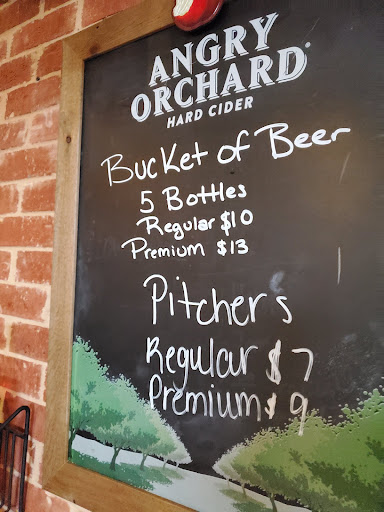 ANGRY
ORCHARD®
HARD CIDER
Bucket of Beer
5 Bottles
Regular $10
Premium $13
Pitchers
Regular $7
Premium $9